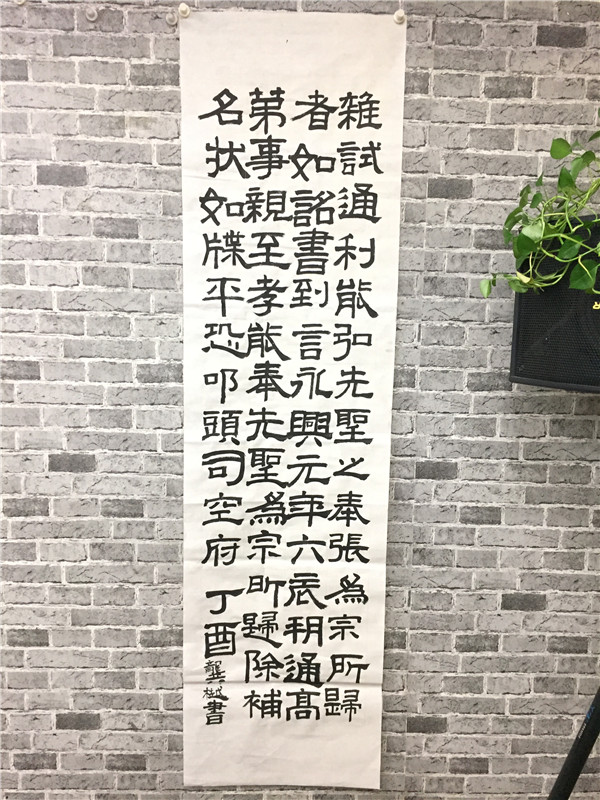 雜試通利能弘先聖之奉張為宗所歸
者如詔書到言永興元年六辰朔通高
第事親至孝能奉先聖為宗所歸除補
名狀如牒平恐叩頭司空府
丁酉龔樾書